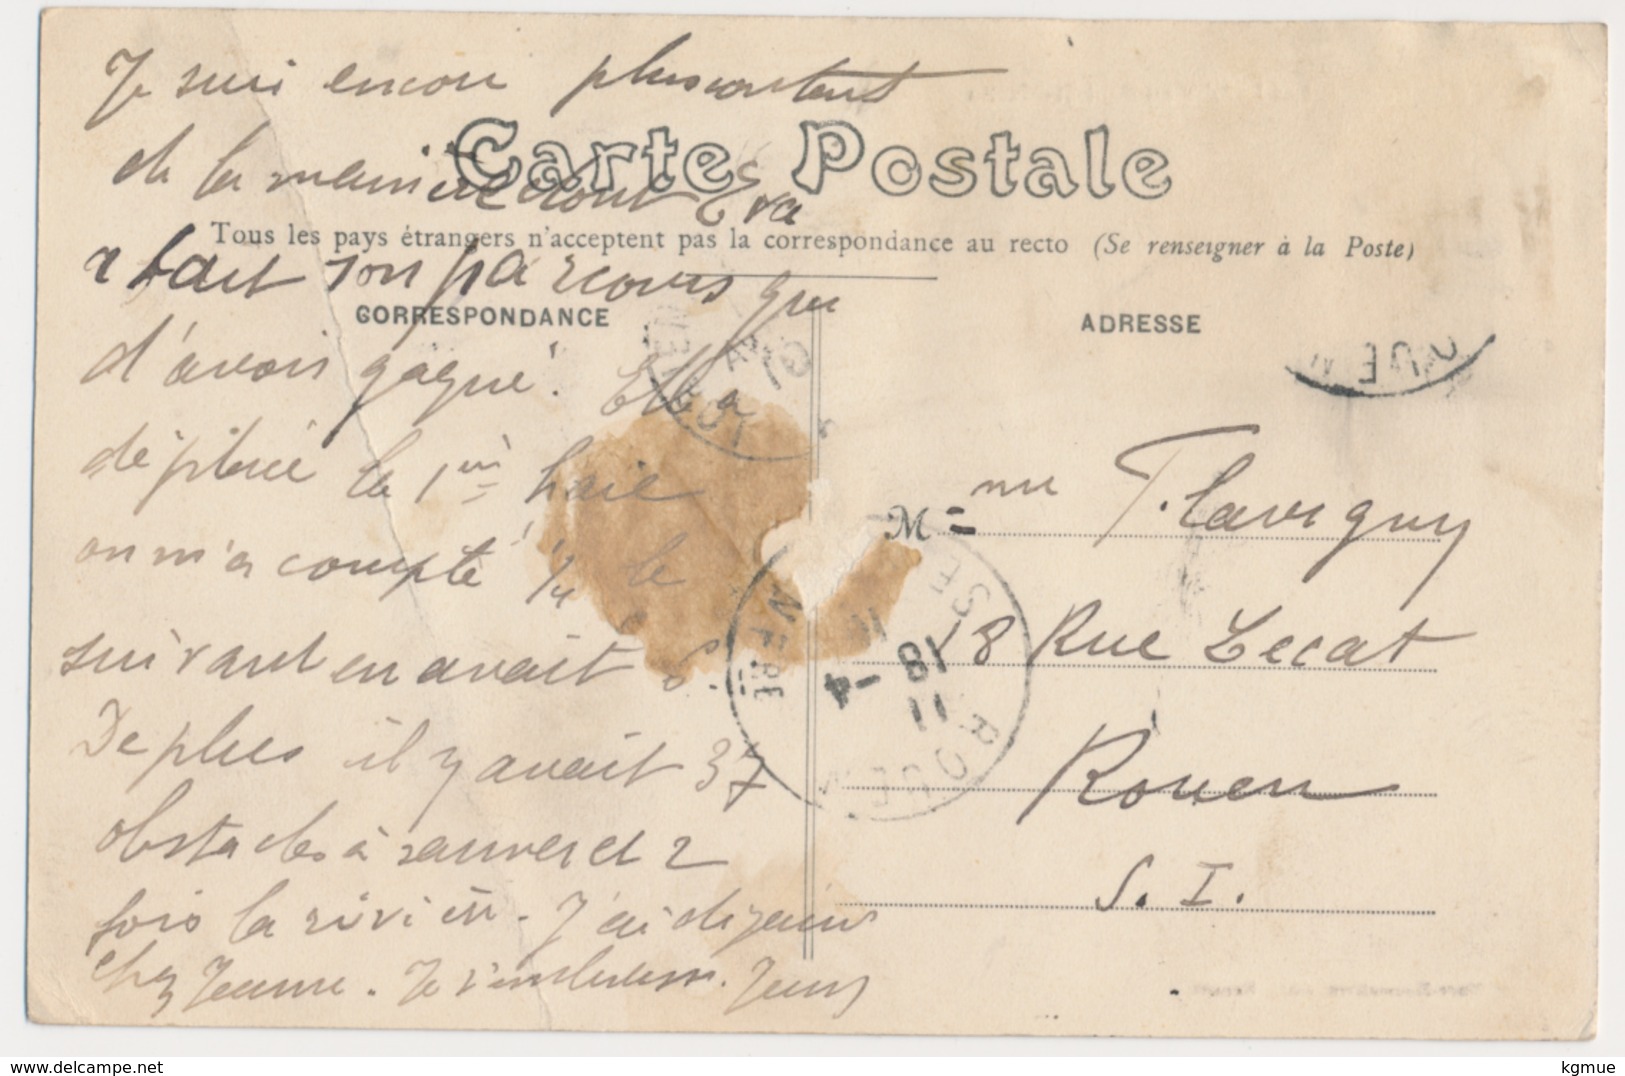 Je suis encore plus content
de la manière dont Eva
a fait son parcours que
d'avoir gagné. Elle a
déplacé la 1ère haie
on m'a compté 1/4 le
suivant en avait 8.
De plus il y avait 37
obstacles à sauver et 2
fois la rivière. J'ai déjeuné
chez Jeanne. Je t'embrasse.
Carte Postale
Tous les pays étrangers n'acceptent pas la correspondance au recto (Se renseigner à la Poste)
CORRESPONDANCE
ADRESSE
Mme T. Lavigny
18 Rue Lecat
Rouen
S. I.
ROUEN
18 - 4
11
INFRE
delcampe.net
kgmue